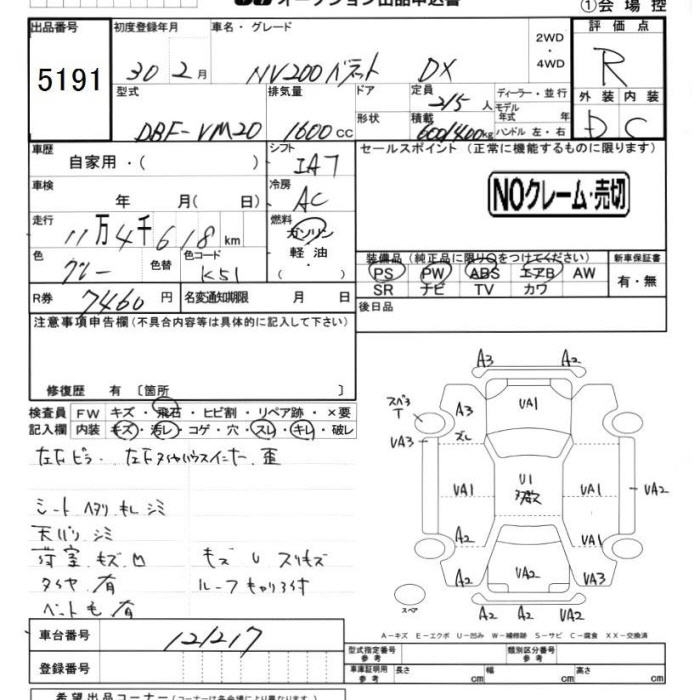 オークション出品申込書
①会場控
出品番号
5191
初度登録年月
30 2月
車名・グレード
NV200バネット DX
2WD・4WD
評価点
R
外装 内装
D C
型式
DBF-VM20
排気量
1600cc
ドア
形状
定員
2/5人
積載
600/400kg
ディーラー・並行
モデル年式 年
ハンドル 左・右
車歴
自家用・( )
シフト
IA7
車検
年 月( 日)
冷房
AC
走行
11万4千618km
燃料
ガソリン・軽油・( )
色
グレー
色替
色コード
K51
R券
7460円
名変通知期限 月 日
セールスポイント(正常に機能するものに限ります)
NOクレーム・売切
装備品(純正品に限り○をつけてください)
PS PW ABS エアB AW
SR ナビ TV カワ
新車保証書
有・無
後日品
注意事項申告欄(不具合内容等は具体的に記入して下さい)
修復歴 有 [箇所 ]
検査員記入欄
FW キズ・飛石・ヒビ割・リペア跡・×要
内装 キズ・汚レ・コゲ・穴・スレ・キレ・破レ
左右ピラー 左右タイヤハウスインナー 歪
シート ヘタリ キレ シミ
天バリ シミ
荷室 キズ 凹
キズ U スリキズ
タイヤ 有
ルーフキャリア付
ペット毛 有
A3 A2
スペア T
A3
VA1
VA3
ズレ
VA1
U1
VA1
VA2
A2
A2
VA2
VA3
スペア
A2 A2 VA2
A-キズ E-エクボ U-凹み W-補修跡 S-サビ C-腐食 XX-交換済
車台番号
121217
登録番号
型式指定番号 参考
類別区分番号 参考
車庫証明用 参考
長さ cm
幅 cm
高さ cm
希望出品コーナー(コーナーは各会場により異なります)